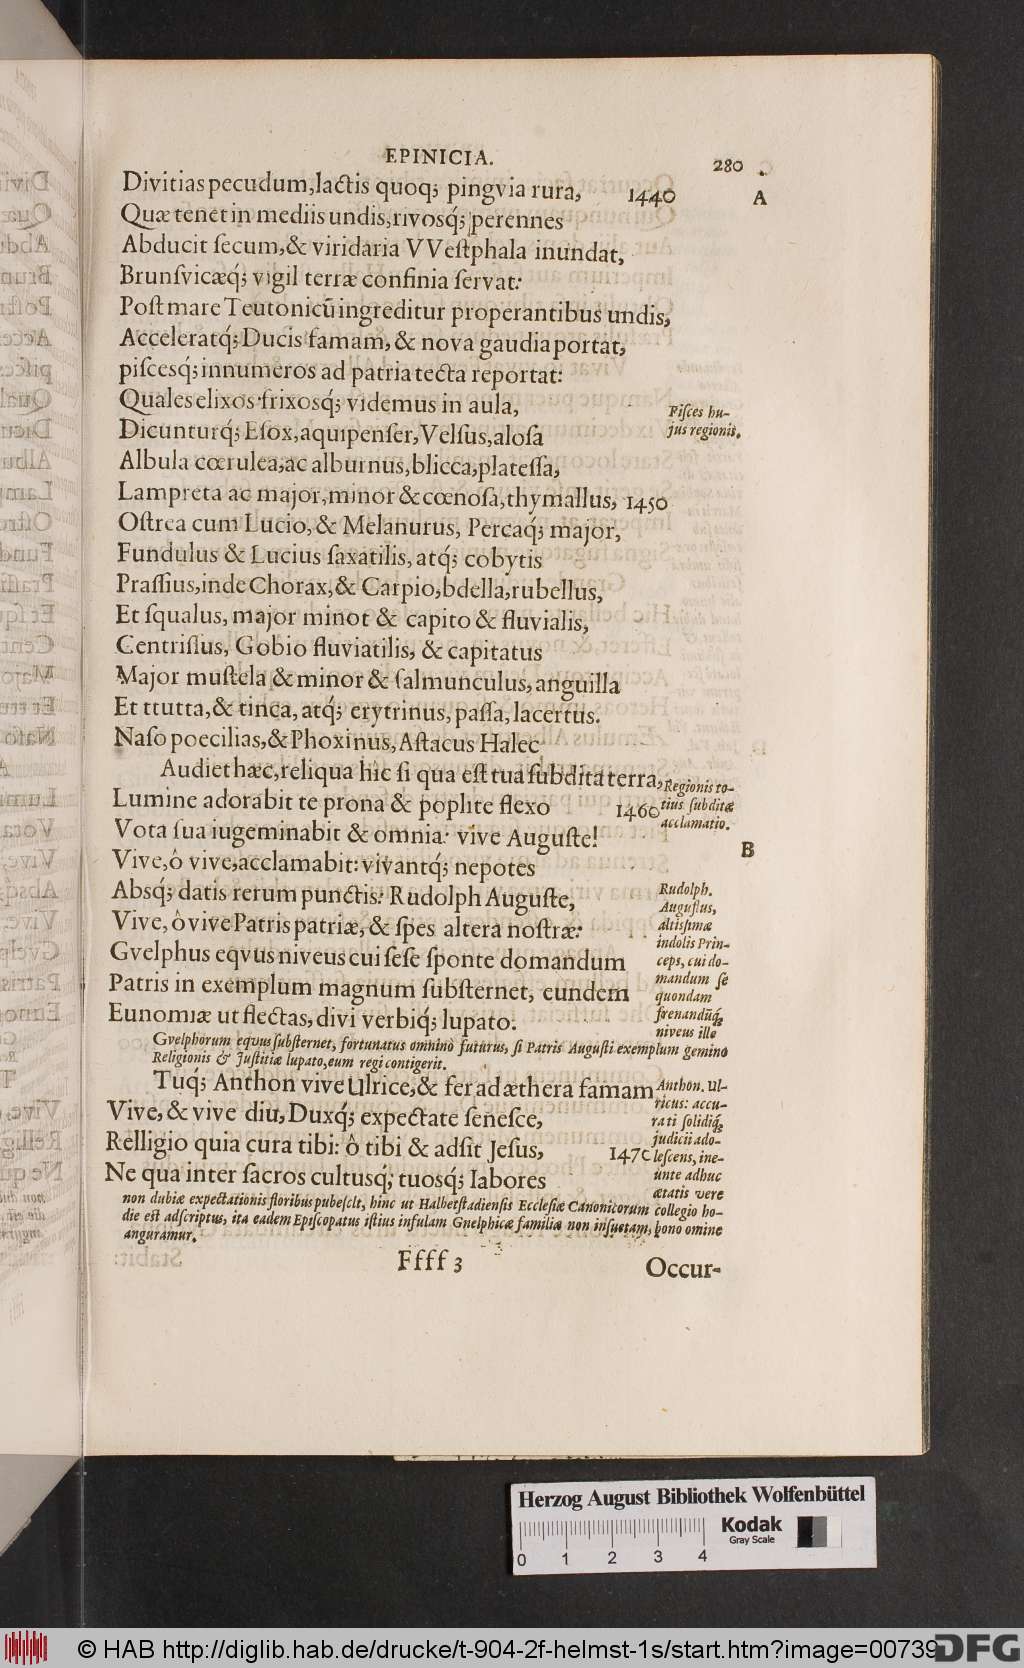 EPINICIA.
280
A
Divitias pecudum, lactis quoq; pingvia rura, 1440
Quæ tenet in mediis undis, rivosq́; perennes
Abducit ſecum, & viridaria VVeſtphala inundat,
Brunſvicæq́; vigil terræ confinia ſervat:
Poſt mare Teutonicũ ingreditur properantibus undis,
Acceleratq́; Ducis famam, & nova gaudia portat,
piſcesq́; innumeros ad patria tecta reportat:
Quales elixos frixosq́; videmus in aula,
Piſces hu-
jus regionis.
Dicunturq́; Eſox, aquipenſer, Velſus, aloſa
Albula cœrulea, ac alburnus, blicca, plateſſa,
Lampreta ac major, minor & cœnoſa, thymallus, 1450
Oſtrea cum Lucio, & Melanurus, Percaq́; major,
Fundulus & Lucius ſaxatilis, atq́; cobytis
Praſſius, inde Chorax, & Carpio, bdella, rubellus,
Et ſqualus, major minot & capito & fluvialis,
Centriſius, Gobio fluviatilis, & capitatus
Major muſtela & minor & ſalmunculus, anguilla
Et ttutta, & tinca, atq́; erytrinus, paſſa, lacertus.
Naſo poecilias, & Phoxinus, Aſtacus Halec
Audiet hæc, reliqua hic ſi qua eſt tua ſubdita terra,
Lumine adorabit te prona & poplite flexo 1460
Regionis to-
tius ſubditæ
acclamatio.
Vota ſua iugeminabit & omnia: vive Auguſte!
B
Vive, ô vive, acclamabit: vivantq́; nepotes
Absq́; datis rerum punctis: Rudolph Auguſte,
Vive, ô vive Patris patriæ, & ſpes altera noſtræ:
Gvelphus eqvus niveus cui ſeſe ſponte domandum
Patris in exemplum magnum ſubſternet, eundem
Eunomiæ ut flectas, divi verbiq́; lupato:
Rudolph.
Auguſtus,
altiſsimæ
indolis Prin-
ceps, cui do-
mandum ſe
quondam
frenandũq́
niveus ille
Gvelphorum eqvus ſubſternet, fortunatus omninò futurus, ſi Patris Auguſti exemplum gemino
Religionis & Juſtitiæ lupato, eum regi contigerit.
Tuq́; Anthon vive Ulrice, & fer ad æthera famam
Vive, & vive diu, Duxq́; expectate ſeneſce,
Relligio quia cura tibi: ô tibi & adſit Jeſus, 1470
Ne qua inter ſacros cultusq́; tuosq́; labores
Anthon. Ul-
ricus: accu-
rati ſolidiq́
judicii ado-
leſcens, ine-
unte adhuc
ætatis vere
non dubiæ expectationis floribus pubeſcit, hinc ut Halberſtadienſis Eccleſiæ Canonicorum collegio ho-
die eſt adſcriptus, ita eadem Epiſcopatus iſtius inſulam Guelphicæ familiæ non inſuetam, bono omine
anguramur.
Ffff 3
Occur-
Herzog August Bibliothek Wolfenbüttel
Kodak
Gray Scale
0 1 2 3 4
© HAB http://diglib.hab.de/drucke/t-904-2f-helmst-1s/start.htm?image=00739
DFG